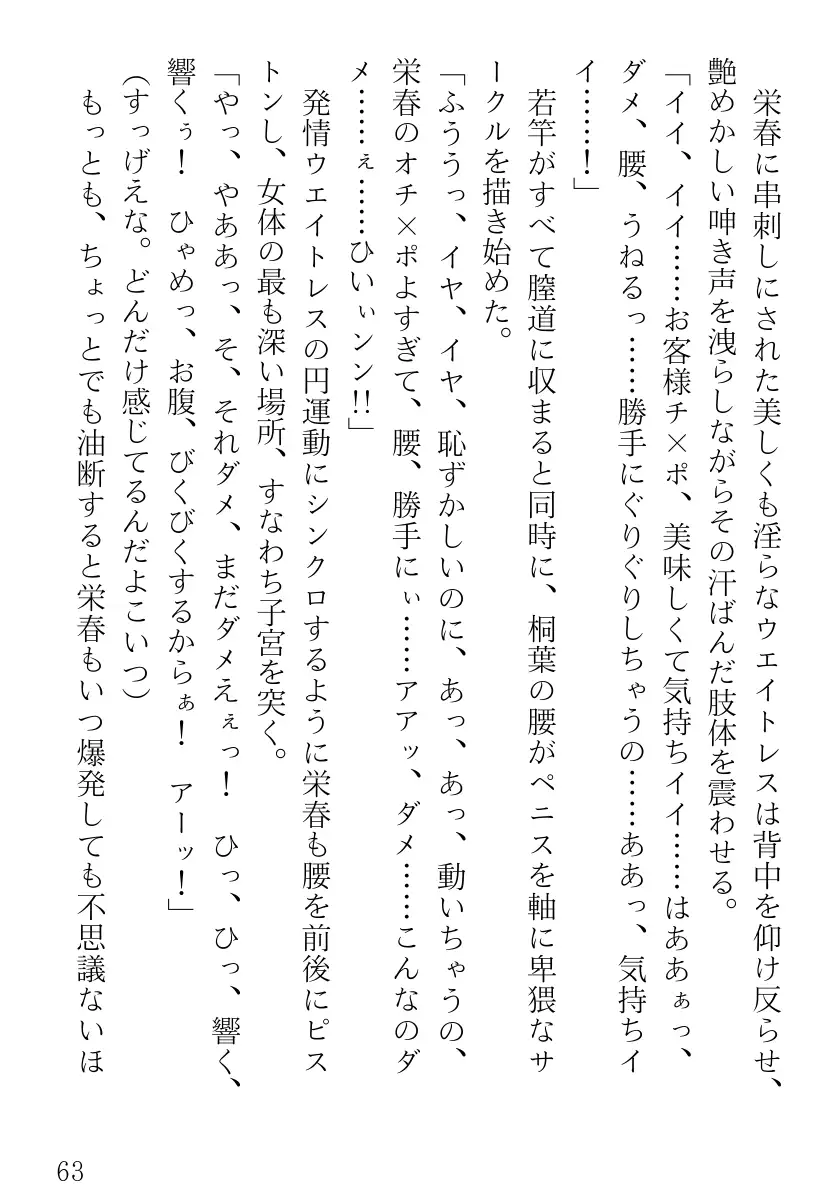 栄春に串刺しにされた美しくも淫らなウエイトレスは背中を仰け反らせ、
艶めかしい呻き声を洩らしながらその汗ばんだ肢体を震わせる。
「イイ、イイ……お客様チ×ポ、美味しくて気持ちイイ……はああぁっ、
ダメ、腰、うねるっ……勝手にぐりぐりしちゃうの……ああっ、気持ちイ
イ……！」
若竿がすべて膣道に収まると同時に、桐葉の腰がペニスを軸に卑猥なサ
ークルを描き始めた。
「ふううっ、イヤ、イヤ、恥ずかしいのに、あっ、あっ、動いちゃうの、
栄春のオチ×ポよすぎて、腰、勝手にぃ……アアッ、ダメ……こんなのダ
メ……ぇ……ひいぃンン!!」
発情ウエイトレスの円運動にシンクロするように栄春も腰を前後にピス
トンし、女体の最も深い場所、すなわち子宮を突く。
「やっ、やああっ、そ、それダメ、まだダメえぇっ！　ひっ、ひっ、響く、
響くぅ！　ひゃめっ、お腹、びくびくするからぁ！　アーッ！」
(すっげえな。どんだけ感じてるんだよこいつ)
もっとも、ちょっとでも油断すると栄春もいつ爆発しても不思議ないほ
63